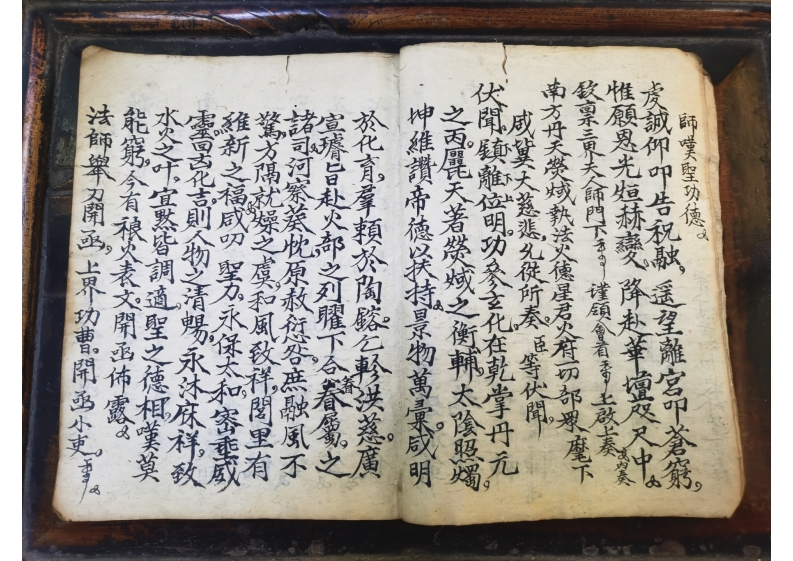 師嘆聖功德。
虔誠仰叩告祝融。遥望離宮叩蒼穹。
惟願恩光烜赫變。降赴華壇咫尺中。
欽稟三界天師門下 謹領會首 上啟上奏
南方丹天熒惑執法火德星君火府一切部眾麾下
咸冀大慈悲允從所奏。臣等伏聞。
伏聞。鎮離位明。功參玄化在乾掌丹元
之丙。麗天著熒惑之衡輔。太陰照燭。
坤維讚帝德以扶持。景物萬彙。咸明
於化育。羣賴於陶鎔。乞軫洪慈。廣
宣睿旨赴火部之列曜下合眷屬。之
諸司河察葵忱原赦愆咎庶融風不
驚。方隅就燥之虞。和風致祥。閭里有
維新之福。咸叨聖力。永保太和。密垂威
靈。回玄化吉。則人物之清暢。永沐庥祥。致
水火之叶。宜黙皆調適聖之德相嘆莫
能窮。今有禳火表文。開函佈露。
法師舉刀開函。上界功曹。開函小吏。